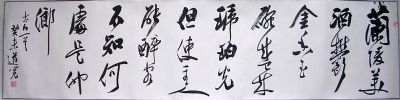 蘭陵美
酒鬱
金香玉
碗盛来
琥珀光
但使主人
能醉客
不知何
處是他
鄉
癸未